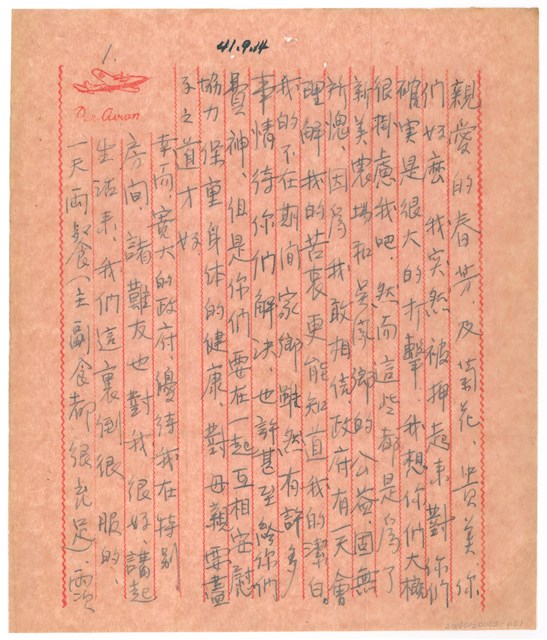 41.9.14
1.
Par Avion
親愛的春芳及菊花、貴美、你
們好麼 我突然被押起來對你們
確實是很大的打擊、我想你們大概
很掛慮我吧、然而這些都是為了
新美農場和吳鳳鄉的公益、固無
所愧、因為我敢相信政府有一天會
理解我的苦衷更能知道我的潔白。
我的不在期間家鄉雖然有許多
事情待你們解決、也許甚至給你們
費神、但是你們要在一起互相安慰
協力保重身体的健康、對母親要盡
子之道才好
幸而、寬大的政府、優待我在特別
房間、諸難友也對我很好、講起
生活來、我們這裏倒很服的、
一天兩餐(主副食都很充足、